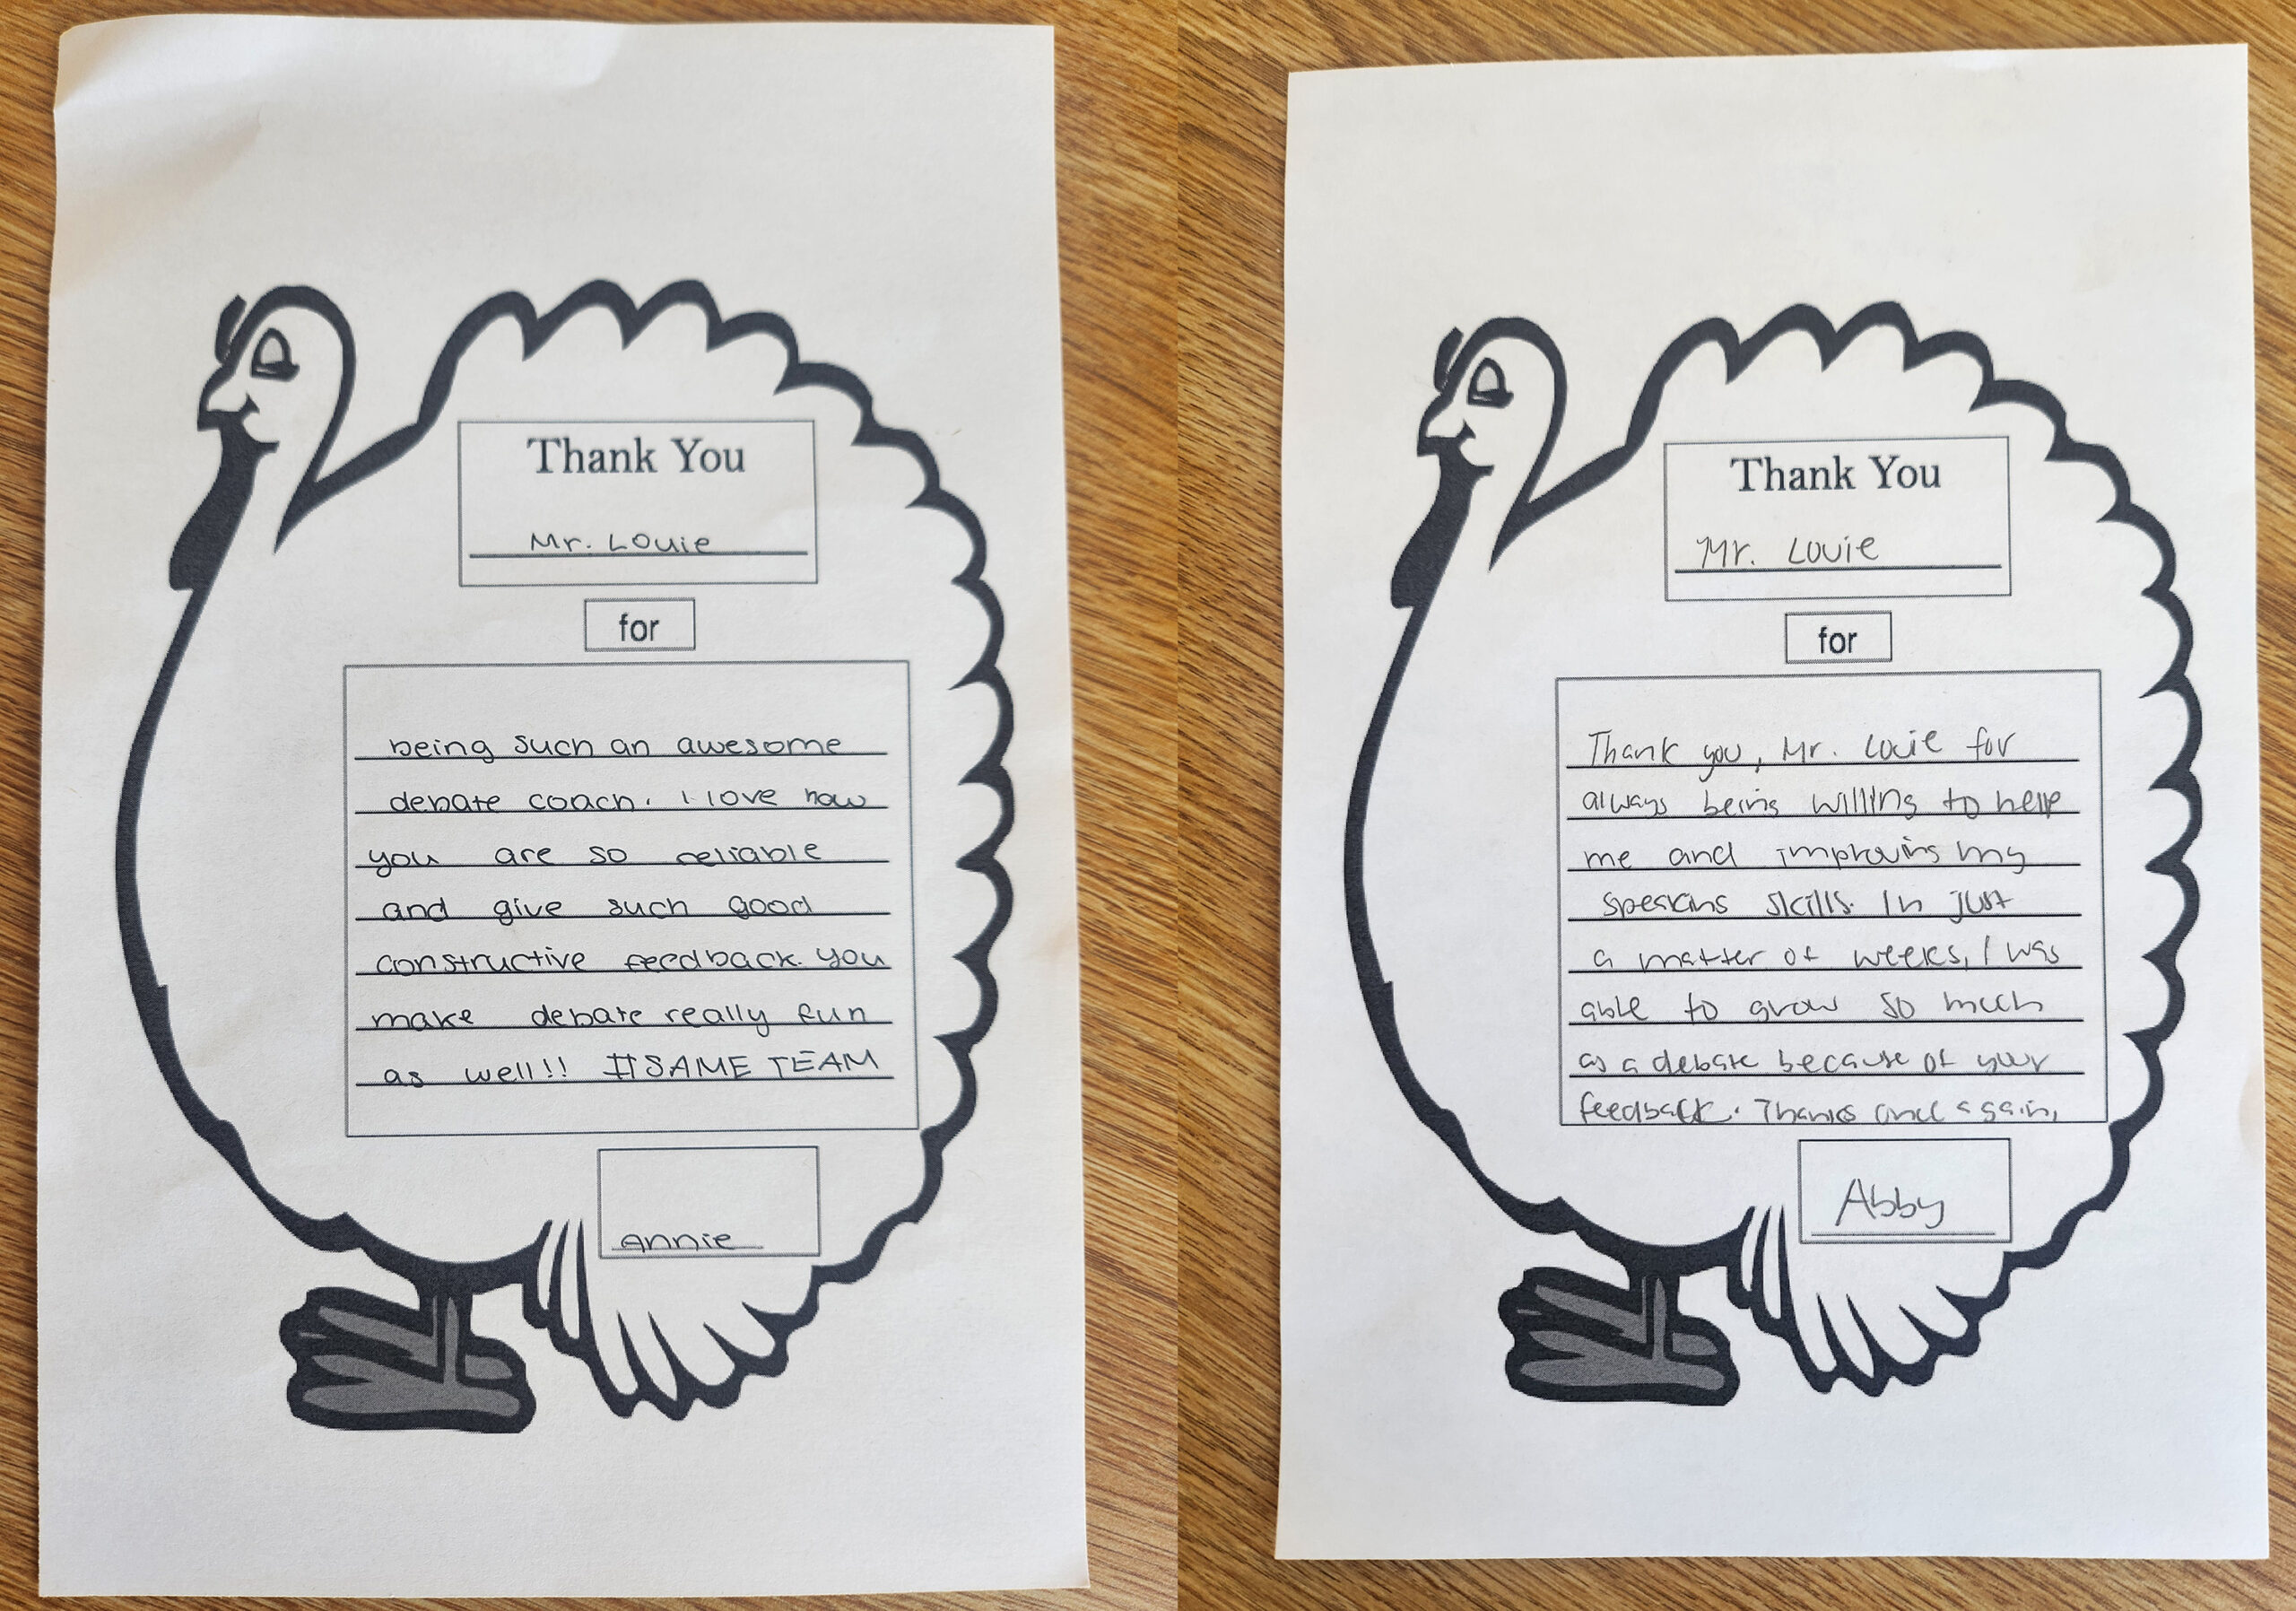 Thank You
Mr. Louie
for
being such an awesome
debate coach. I love how
you are so reliable
and give such good
constructive feedback. you
make debate really fun
as well!! #SAME TEAM
Annie
Thank You
Mr. Louie
for
Thank you, Mr. Louie for
always being willing to help
me and improving my
speaking skills. In just
a matter of weeks, I was
able to grow so much
as a debate because of your
feedback. Thanks once again,
Abby